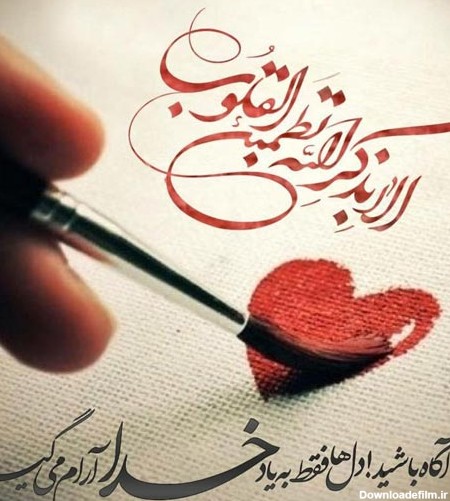 الا بذکر الله تطمئن القلوب
آگاه باشید! دل‌ها فقط به یاد خدا آرام می‌گیرد
Downloadefilm.ir